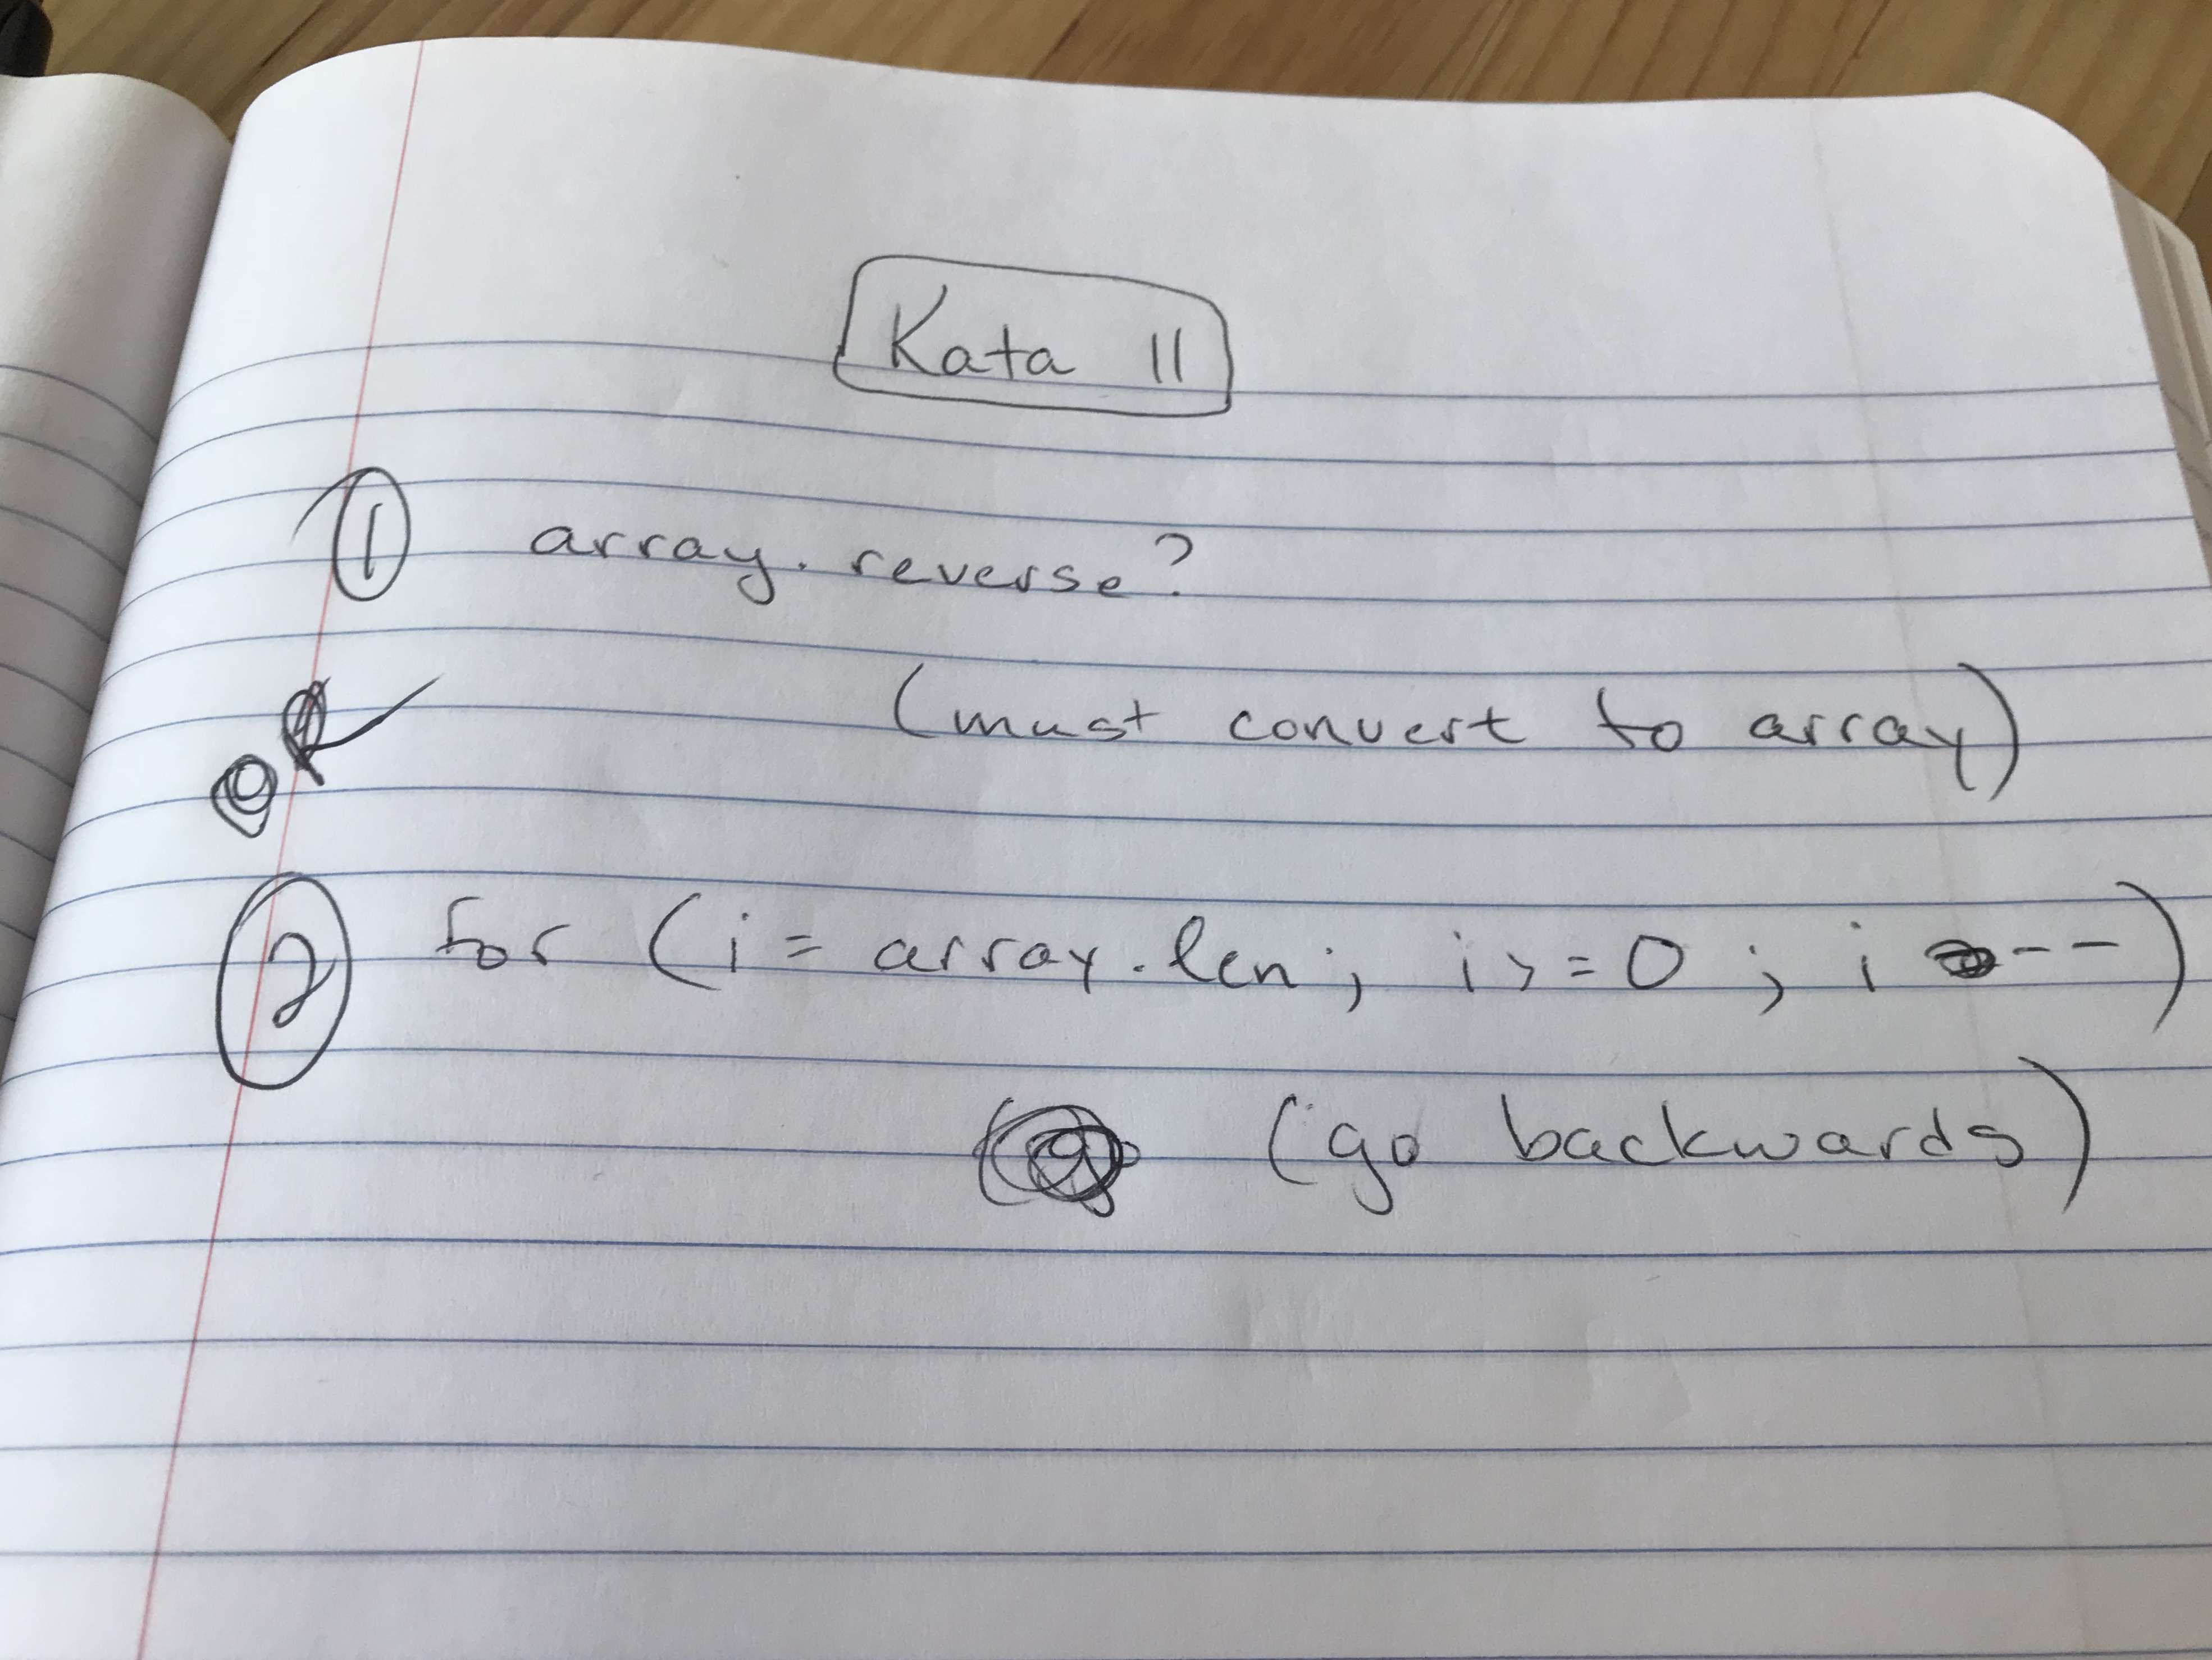 Kata 11
1 array.reverse?
(must convert to array)
OR
2 for (i = array.len; i >= 0; i --)
(go backwards)